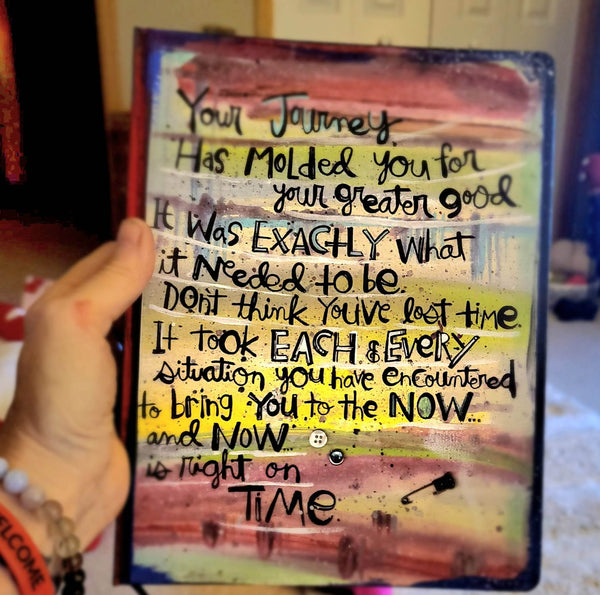 Your Journey
Has Molded you for
your greater good
It Was EXACTLY What
it Needed to be.
Don't think You've lost time.
It took EACH & EVERY
situation you have encountered
to bring You to the NOW...
and NOW...
is right on
TIME.
ELCOME